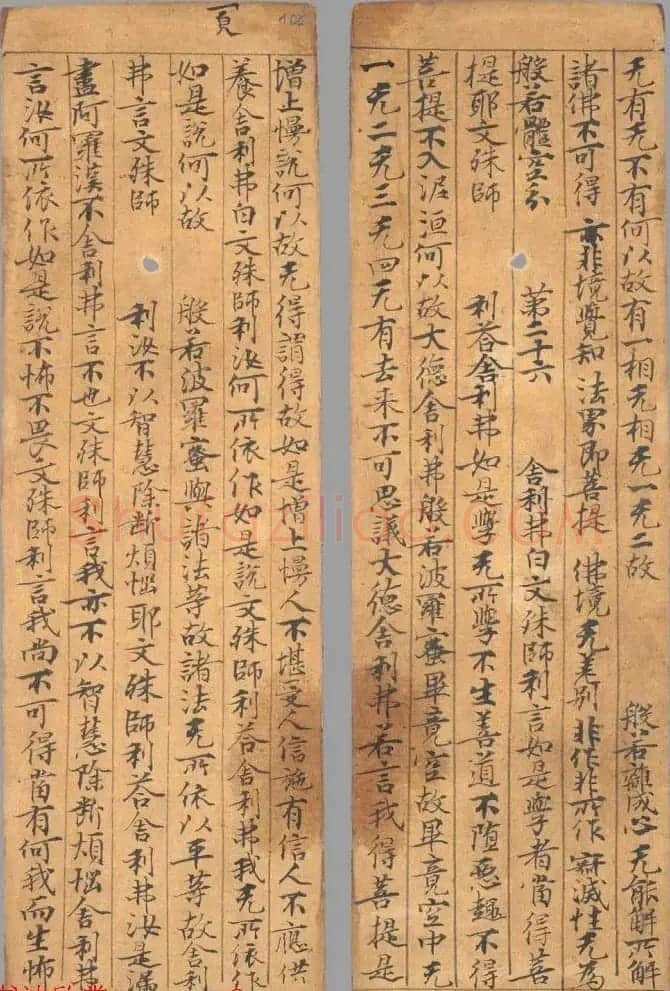 无有无不有何以故有一相无相无一无二故 般若離成心无能解所解
諸佛不可得 亦非境覺知 法界即菩提 佛境无差別 非作非所作 寂滅性无為
般若體空分 第二十六 舍利弗白文殊師利言如是學者當得菩
提耶文殊師 利荅舍利弗如是學无所學不生善道不墮惡趣不得
菩提不入涅洹何以故大德舍利弗般若波羅蜜畢竟空故畢竟空中无
一无二无三无四无有去来不可思議大德舍利弗若言我得菩提是
增上慢說何以故无得謂得故如是增上慢人不堪受人信施有信人不應供
養舍利弗白文殊師利汝何所依作如是說文殊師利荅舍利弗我无所依作
如是說何以故 般若波羅蜜與諸法等故諸法无所依以平等故舍利
弗言文殊師 利汝不以智慧除斷煩惱耶文殊師利荅舍利弗汝是漏
盡阿羅漢不舍利弗言不也文殊師利言我亦不以智慧除斷煩惱舍利弗
言汝何所依作如是說不怖不畏文殊師利言我尚不可得當有何我而生怖